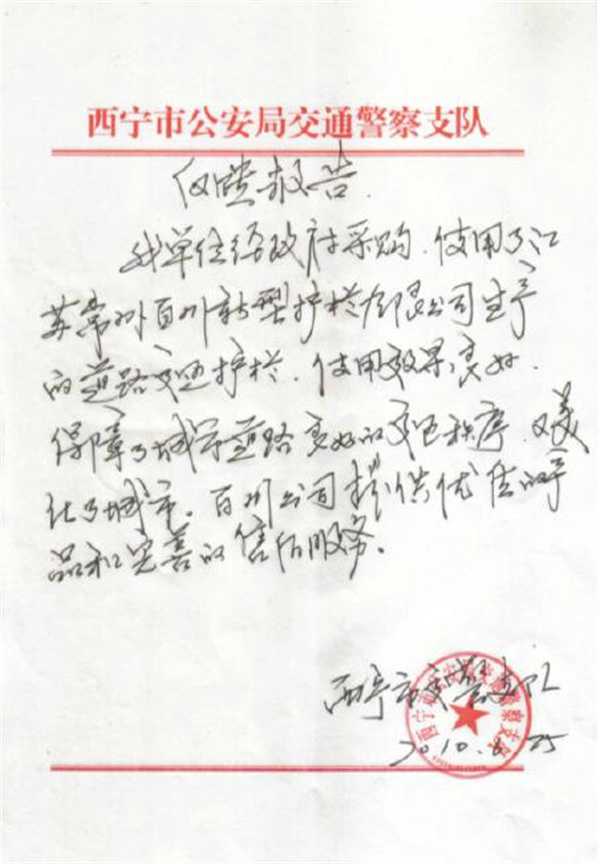 西宁市公安局交通警察支队
反馈报告
我单位经政府采购,使用了江
苏常州百川新型护栏有限公司生产
的道路交通护栏,使用效果良好,
保障了城市道路良好的交通秩序,又美
化了城市。百川公司提供优质的产
品和完善的售后服务。
西宁市交警支队
2010.8.25
西宁市公安局交通警察支队